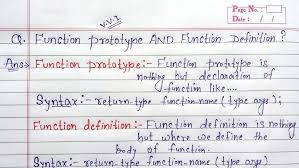 Page No.
Date : / /
V.V.I
Q. Function prototype AND Function Definition ?
Ans> Function prototype:- Function prototype is
nothing but declaration of
function like....
Syntax:- return-type function-name (type args);
Function definition:- Function definition is nothing
but where we define the
body of function.
Syntax:- return-type function-name (type args)